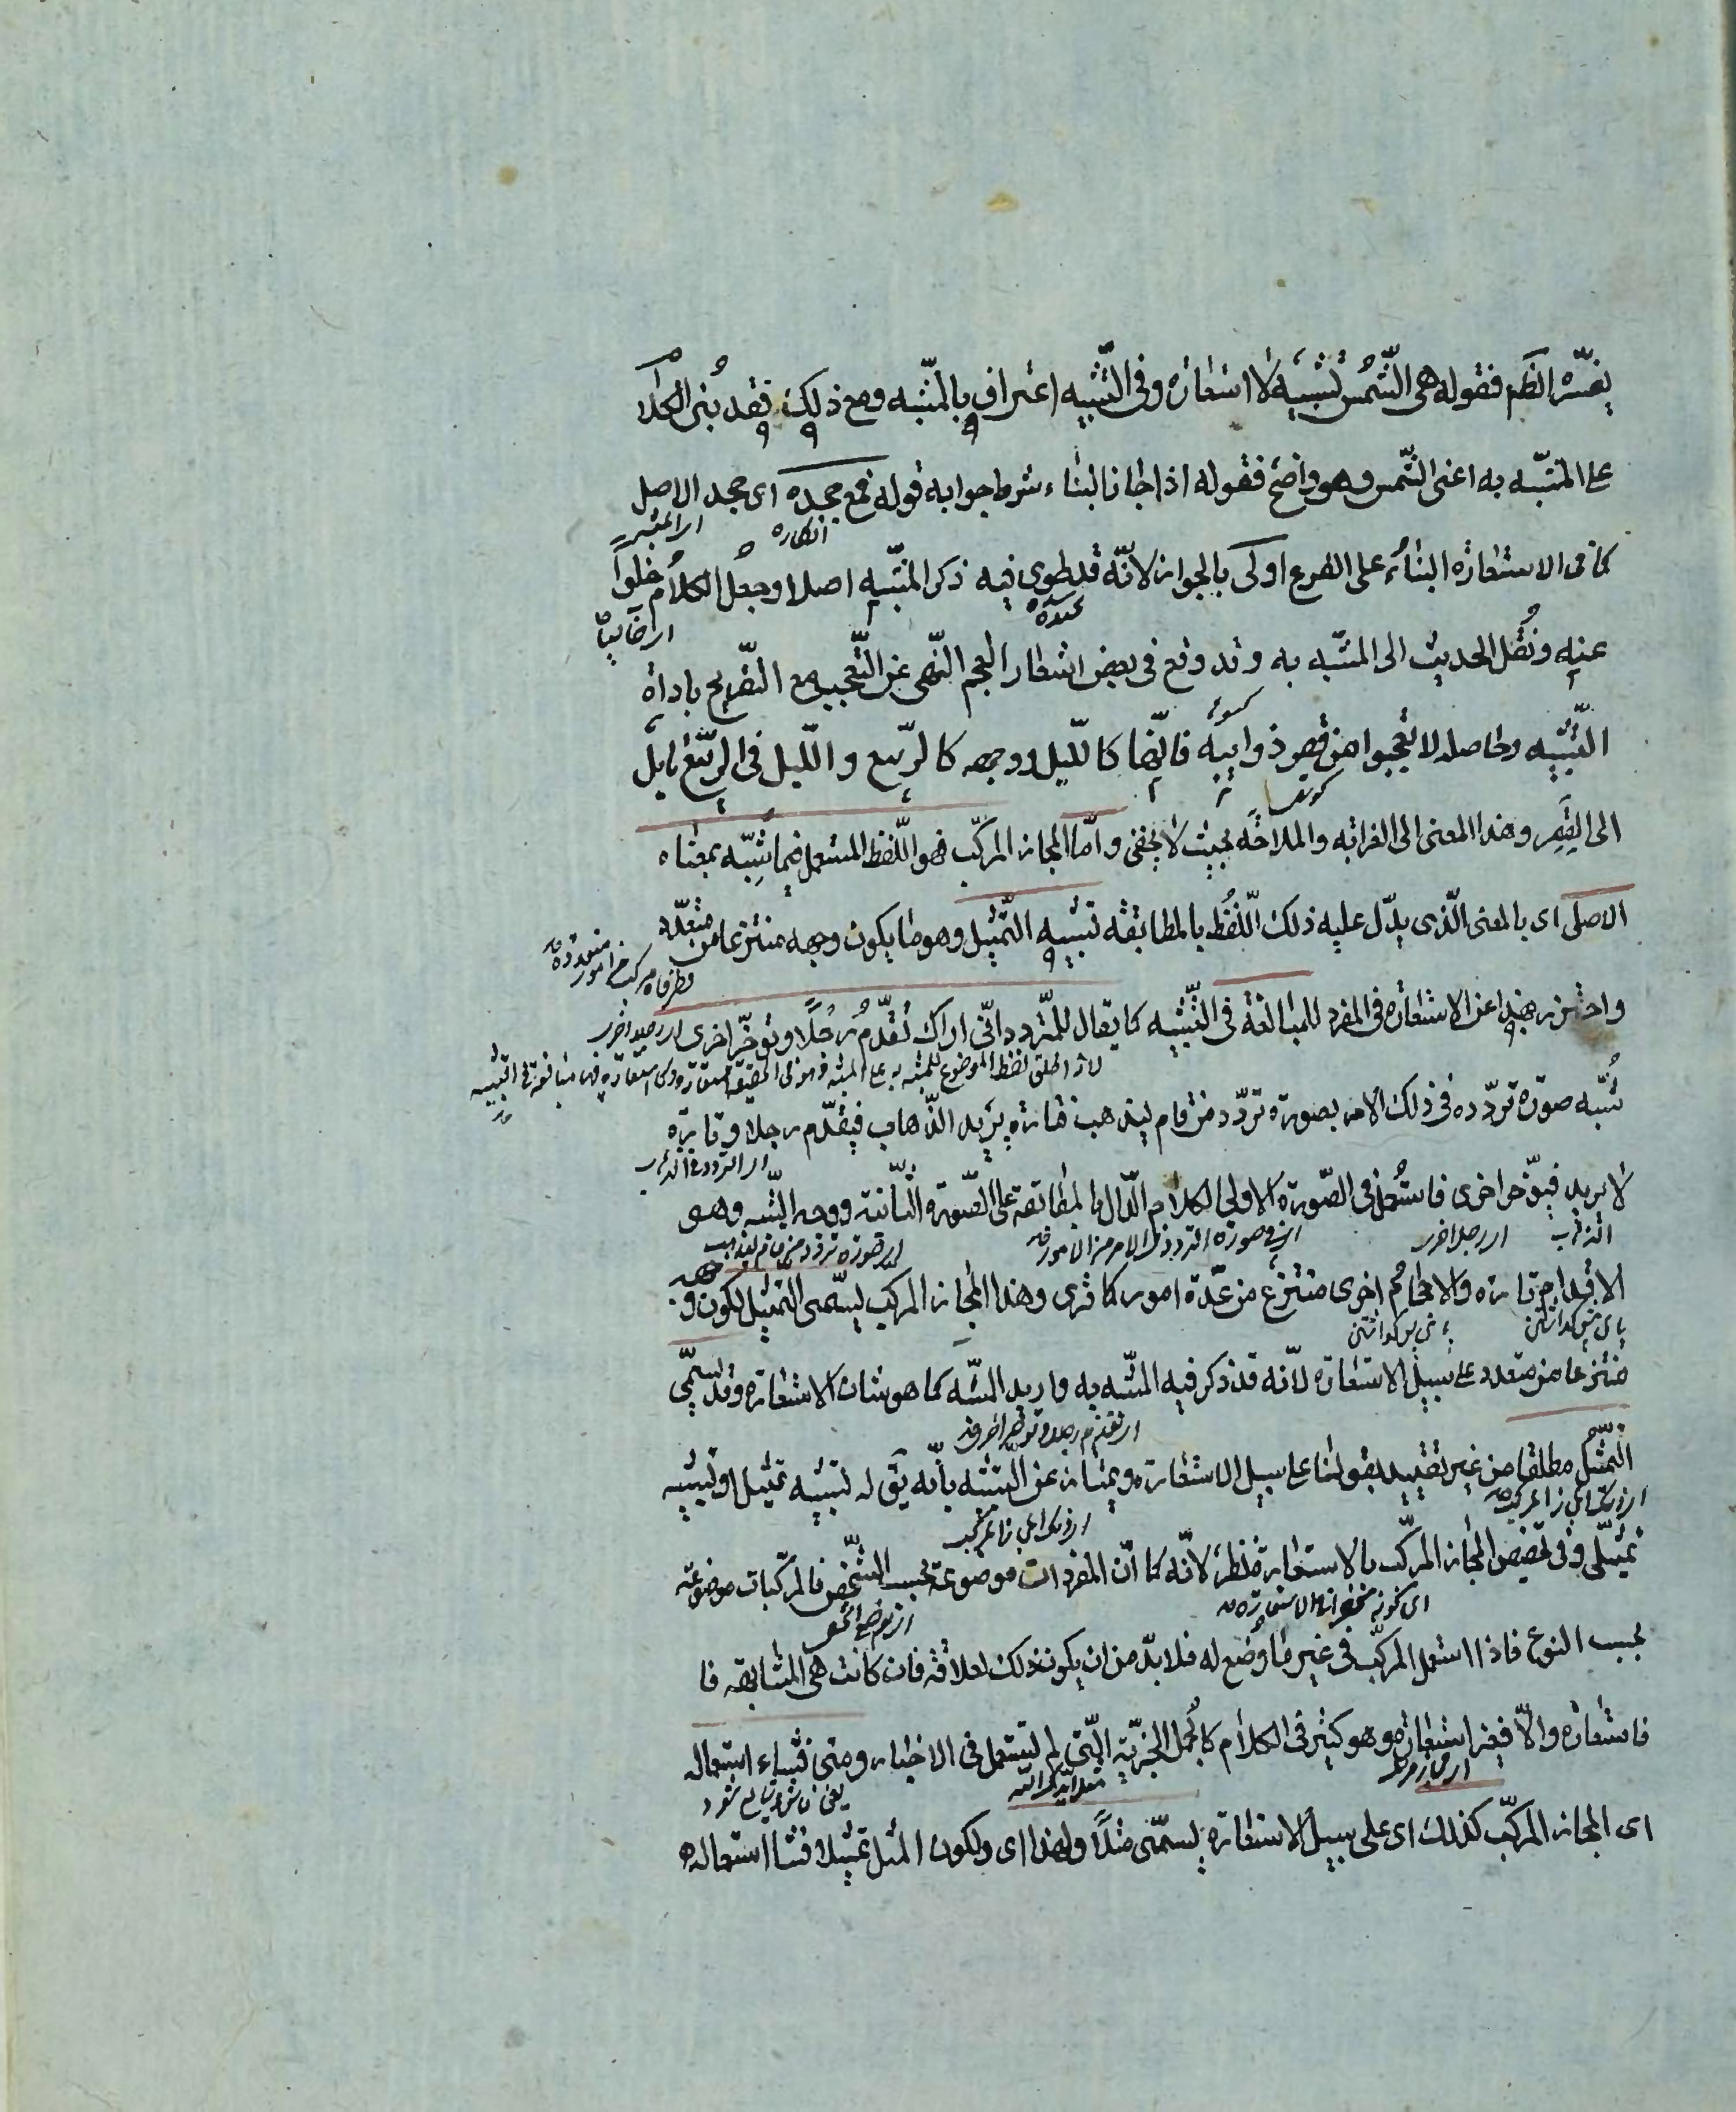 يفسّره الظم فقوله هى الشّمس تشبيه لا استعاره وفى التّشبيه اعتراف بالمشبّه ومع ذلك فقد بُنى الكلام
على المشبّه به اعنى الشّمس وهو واضح فقوله اذا جاز البناء شرط جوابه قوله فمع جحده اى جحد الاصل
انكاره
كما فى الاستعارة البناءُ على الفرع اولى بالجواز لانّه قد طوى فيه ذكر المشبّه اصلا وجعل الكلامُ خلواً
اى خاليا
عنه ونُقل الحديث الى المشبّه به وقد وقع فى بعض اشعار العجم النّهى عن التّعجب مع التّصريح باداة
التّشبيه وحاصله لا تعجبوا من قصر ذوائبه فانّها كاللّيل ووجهه كالرّبيع واللّيل فى الرّبيع مايل
الى القِصَر وهذا المعنى الى الغرابه والملاحة بحيث لا يخفى وامّا المجاز المركّب فهو اللّفظ المستعمل فيما شُبّه بمعناه
الاصلى اى بالمعنى الّذى يدّل عليه ذلك اللّفظ بالمطابقه تشبيه التّمثيل وهو ما يكون وجهه منتزعا من متعدّد
وطرفاه مركب من امور متعدده
واحترز بهذا عن الاستعاره فى المفرد للمبالغة فى التّشبيه كما يقال للمتّردد انّى اراك تقدّم رجلًا وتوخّر اخرى اى رجلا اخرى
لانه اطلق لفظ الموضوع للمشبه به على المشبه
شُبّه صورة تردّده فى ذلك الامر بصورة تردّد من قام ليذهب فتارة يريد الذّهاب فيقدّم رجلا وتارة
اى التردد فى الذهاب
لا يريد فيوّخر اخرى فاستُعمل فى الصّورة الاولى الكلام الدّال بالمطابقة على الصّورة الثّانية ووجه الشّبه وهو
الذهاب اى رجلا اخرى اى صورة تردد من قام ليذهب
الاقدام تارة والاحجام اخرى منتزع من عدّة امور كما ترى وهذا المجاز المركب يسّمى التّمثيل لكون وجهه
منتزعا من متعدد على سبيل الاستعارة لانّه قد ذكر فيه المشبّه به واريد المشبّه كما هو شان الاستعارة وقد يسمّى
اى تقدم رجلا وتوخر اخرى
التّمثيل مطلقا من غير تقييد بقولنا على سبيل الاستعارة ويمتاز عن التّشبيه بانّه يق له تشبيه تمثيل او تشبيه
تمثيلى وفى تخصيص المجاز المركّب بالاستعارة نظر لانّه كما انّ المفردات موضوعة بحسب الشّخص فالمركّبات موضوعة
بحسب النوع فاذا استعمل المركّب فى غير ما وضع له فلا بدّ من ان يكون ذلك لعلاقة فان كانت هى المشابهه فا
فاستعاره والّا فغير استعاره وهو كثير فى الكلام كالجمل الخبريّة الّتى لم تستعمل فى الاخبار ومتى فشاء استعماله
اى المجاز المركّب كذلك اى على سبيل الاستعارة يسمّى مثلًا ولهذا اى ولكون المثل تمثيلا فشا استعماله